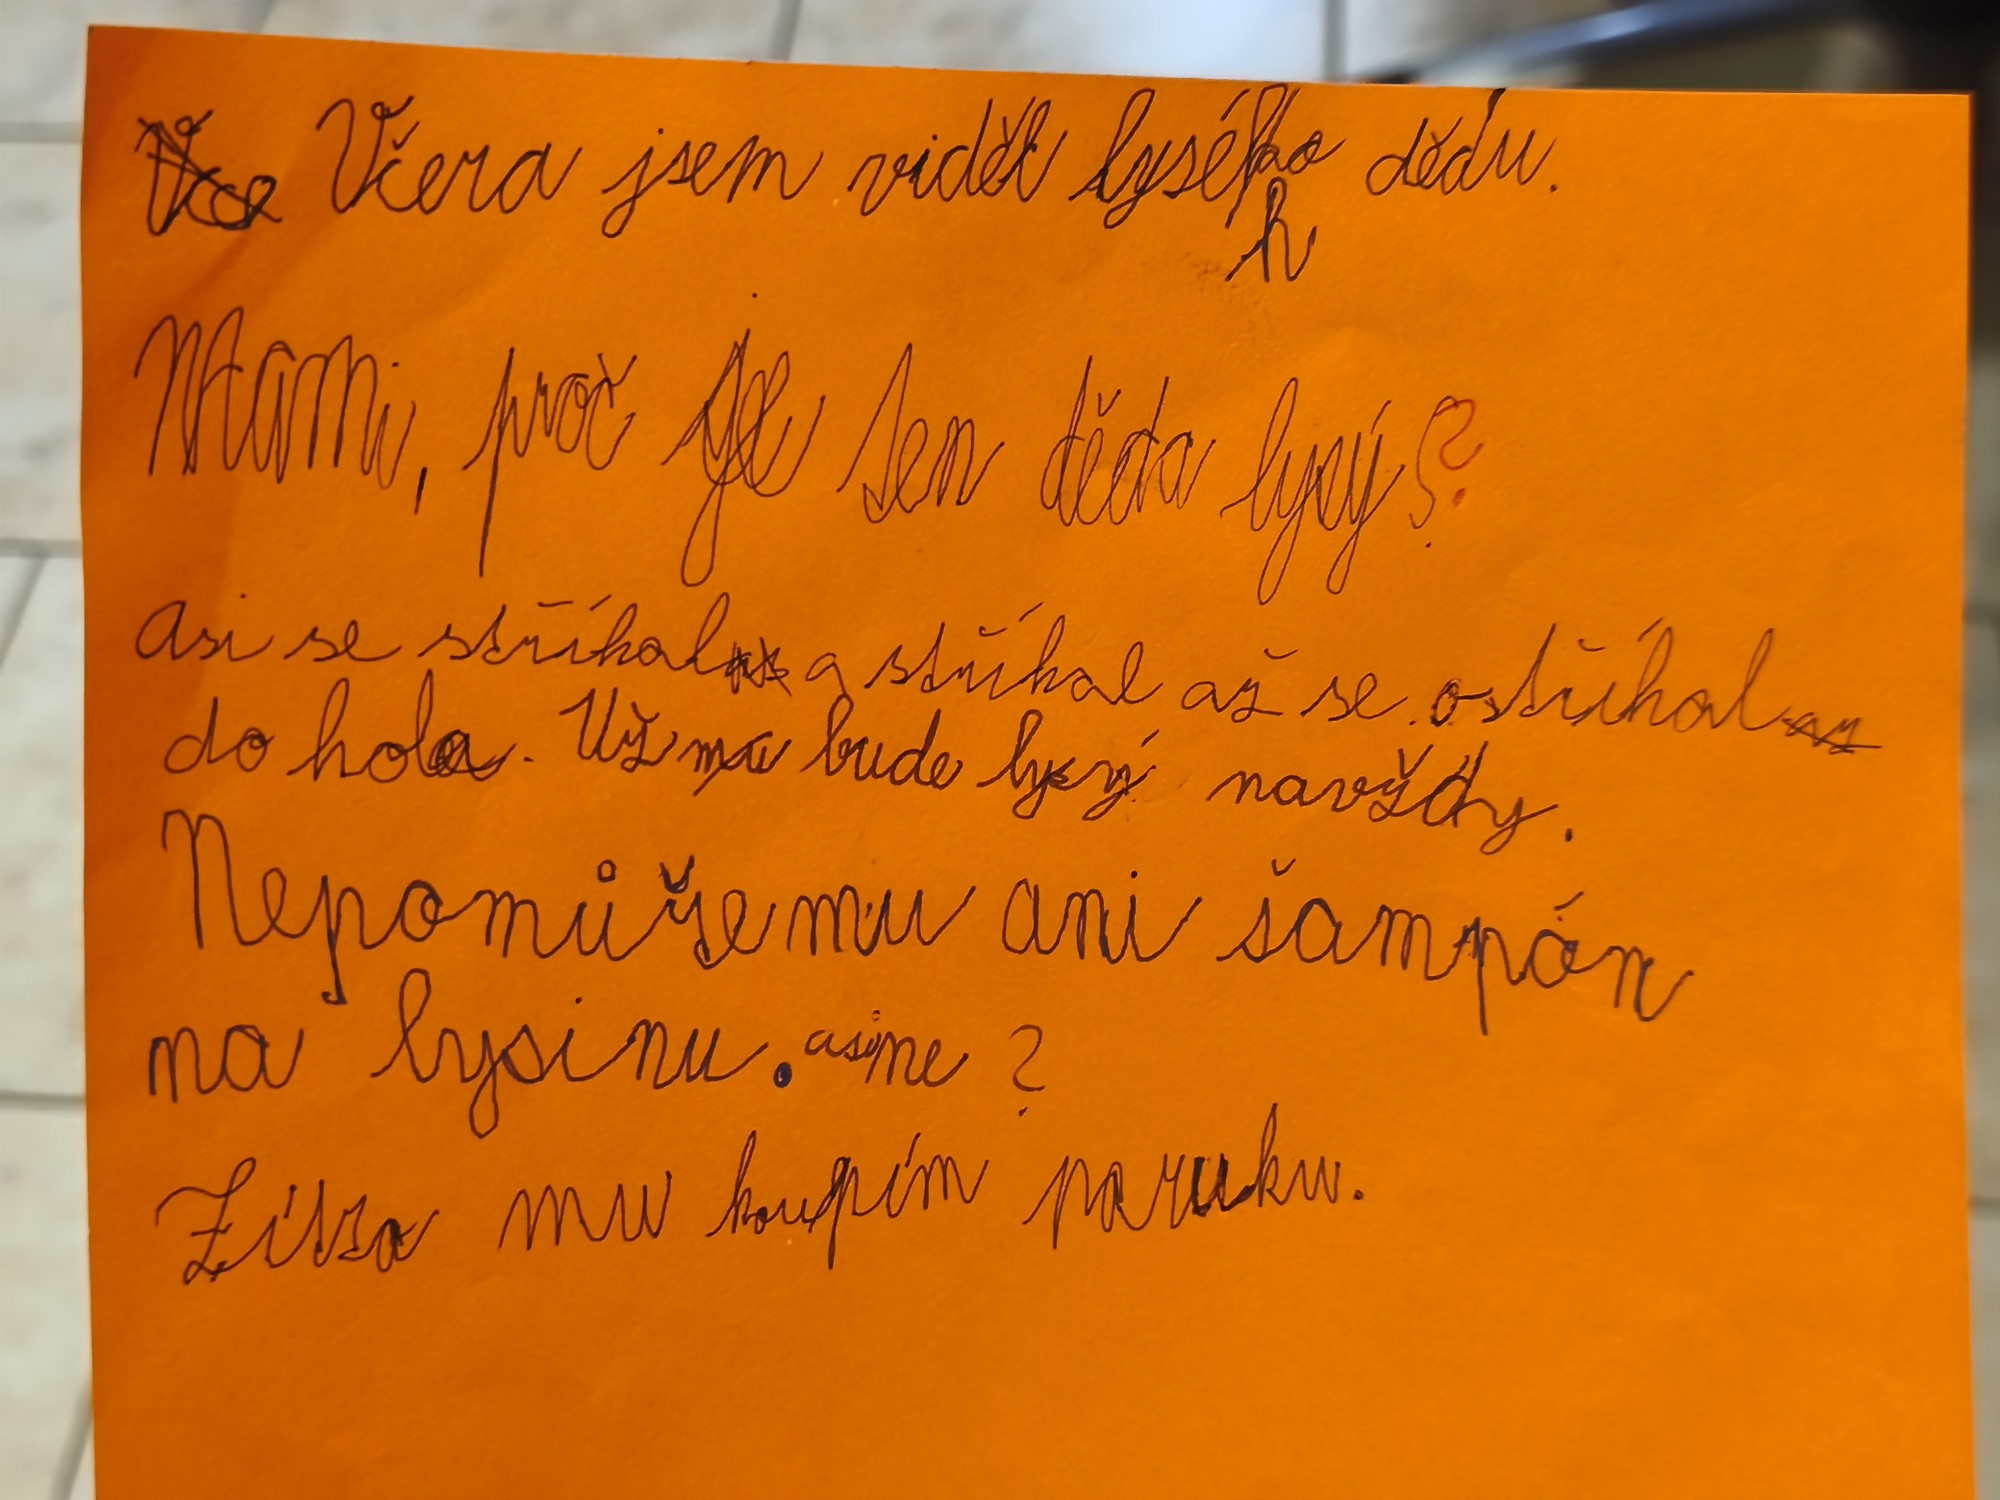 Včera jsem viděl lysého dědu.
h
Mami, proč je ten děda lysý??
asi se stříhal a stříhal až se ostříhal
do hola. Už mu bude lysý navždy.
Nepomůže mu ani šampón
na lysinu. asi ne?
Zítra mu koupím paruku.